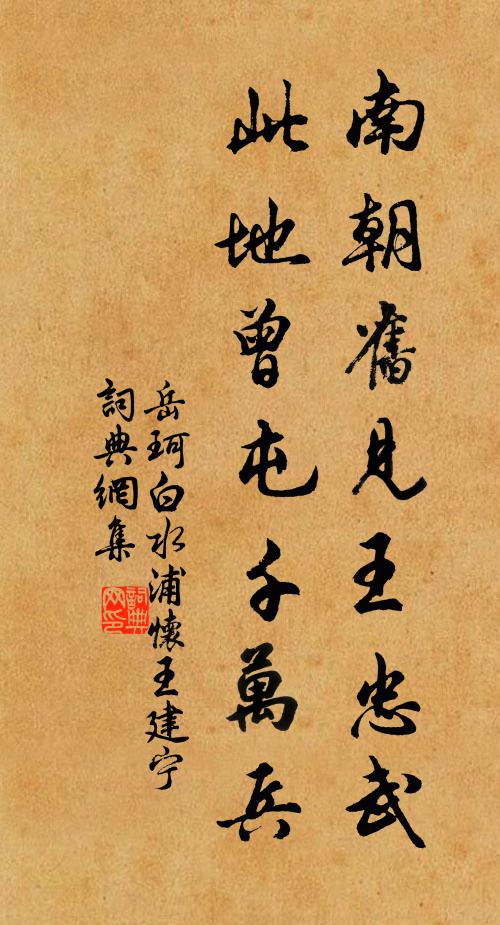 南朝舊見王忠武
此地曾屯千萬兵
岳珂白水浦懷王建宁
詞典網集
詞典网印